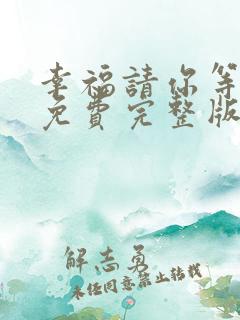 幸福請你等
免費完整版
解志勇
未经同意禁止转载